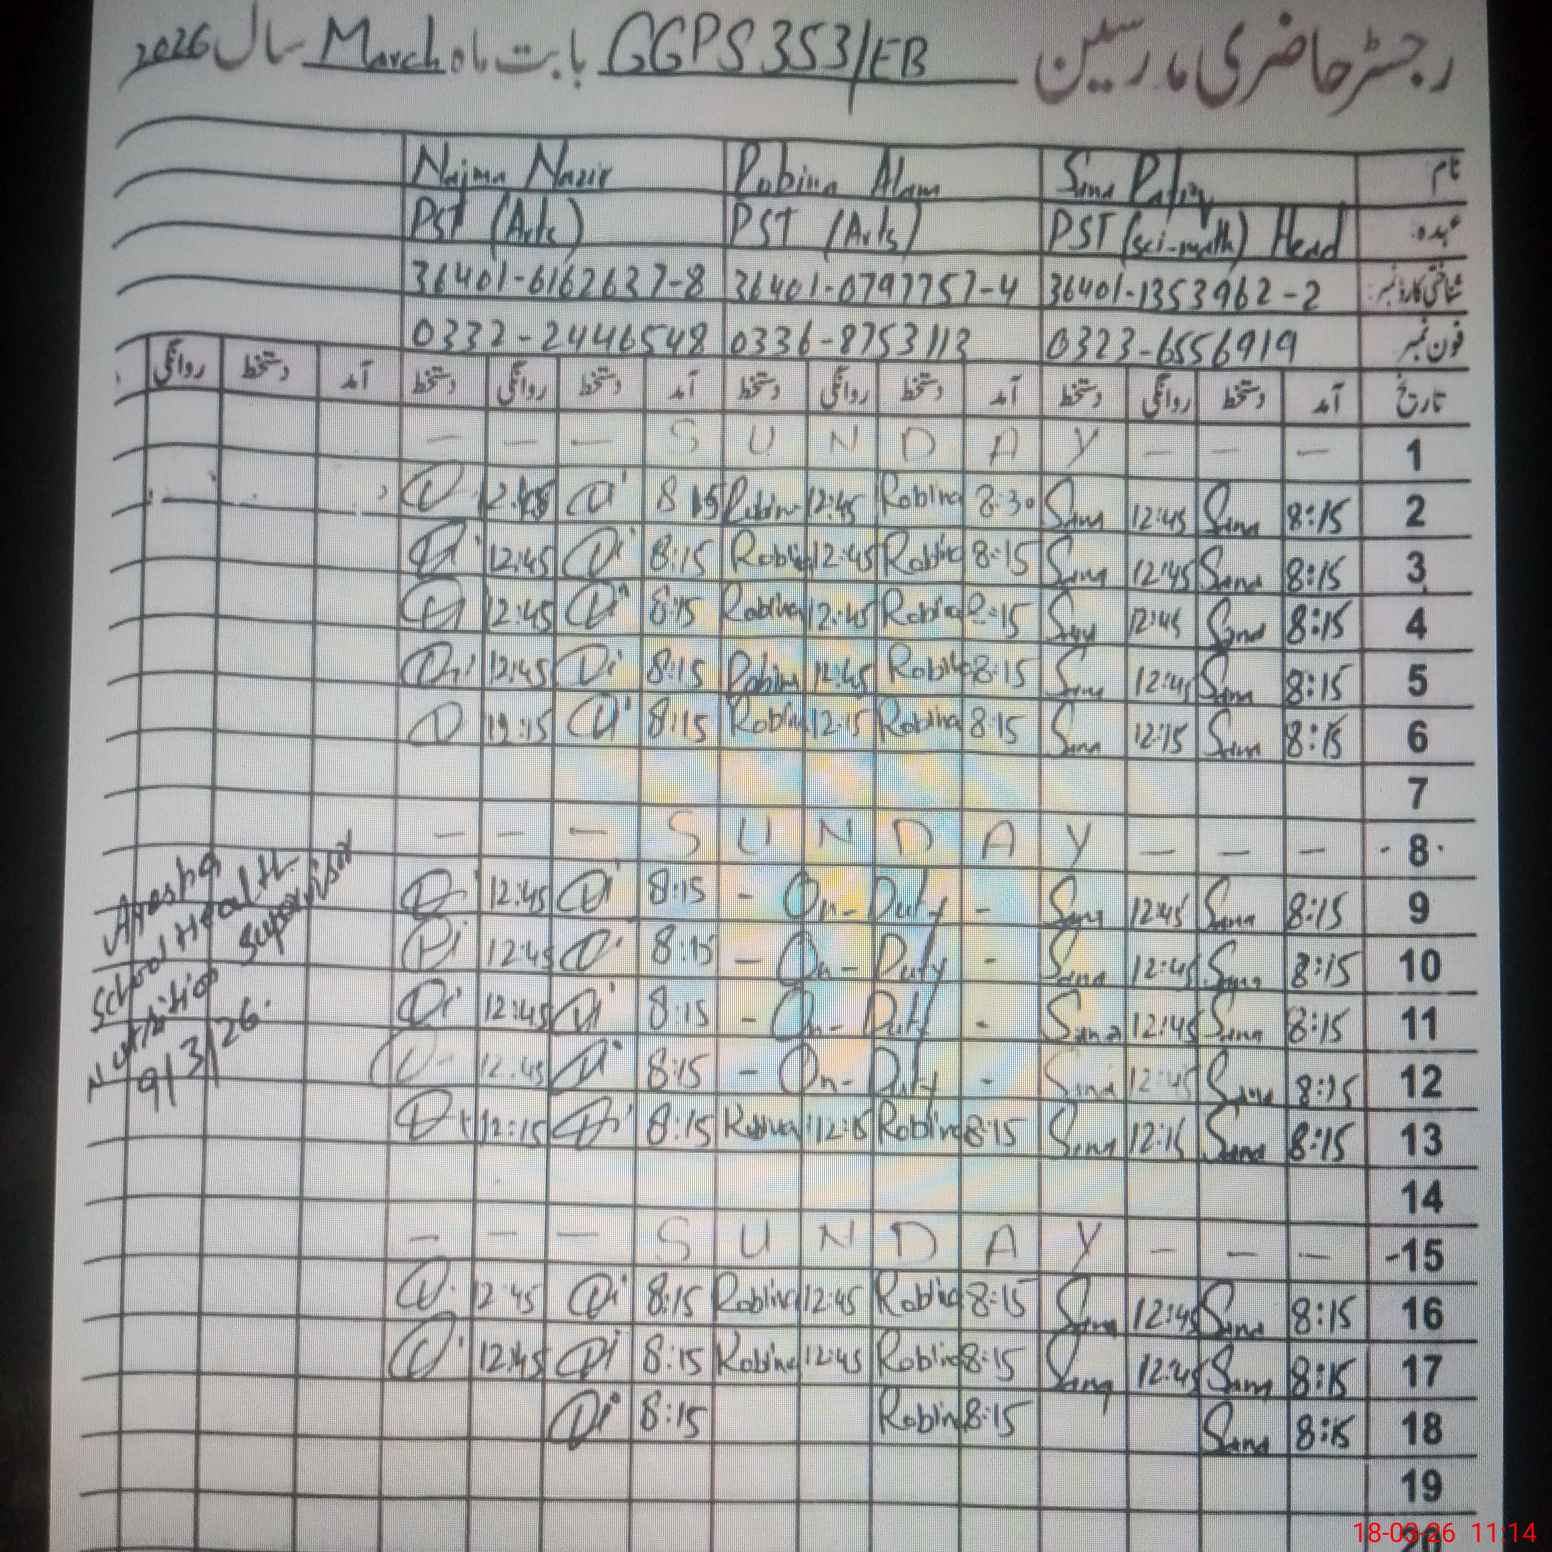 رجسٹر حاضری مدرسین GGPS 353/EB بابت ماہ March سال 2026
نام Sana Rafiq Rubina Alam Najma Nazir
عہدہ PST (sci-math) Head PST (Arts) PST (Arts)
شناختی کارڈ نمبر 36401-1353962-2 36401-0797757-4 36401-6162637-8
فون نمبر 0323-6556919 0336-8753113 0332-2446548
تاریخ آمد دستخط روانگی دستخط آمد دستخط روانگی دستخط آمد دستخط روانگی دستخط آمد دستخط روانگی
1 - - - S U N D A Y - - -
2 8:15 Sana 12:45 Sana 8:30 Robina 12:45 Robina 8:15 12:45
3 8:15 Sana 12:45 Sana 8:15 Robina 12:45 Robina 8:15 12:45
4 8:15 Sana 12:45 Sana 8:15 Robina 12:45 Robina 8:15 12:45
5 8:15 Sana 12:45 Sana 8:15 Robina 12:45 Robina 8:15 12:45
6 8:15 Sana 12:15 Sana 8:15 Robina 12:15 Robina 8:15 12:15
7
8 - - - S U N D A Y - - -
9 8:15 Sana 12:45 Sana - On - Duty - 8:15 12:45
10 8:15 Sana 12:45 Sana - On - Duty - 8:15 12:45
11 8:15 Sana 12:45 Sana - On - Duty - 8:15 12:45
12 8:15 Sana 12:45 Sana - On - Duty - 8:15 12:45
13 8:15 Sana 12:15 Sana 8:15 Robina 12:15 Robina 8:15 12:15
14
15 - - - S U N D A Y - - -
16 8:15 Sana 12:45 Sana 8:15 Robina 12:45 Robina 8:15 12:45
17 8:15 Sana 12:45 Sana 8:15 Robina 12:45 Robina 8:15 12:45
18 8:15 Sana 8:15 Robina 8:15
19
20
School Health
Nutrition Supervisor
9/3/26
18-03-26 11:14